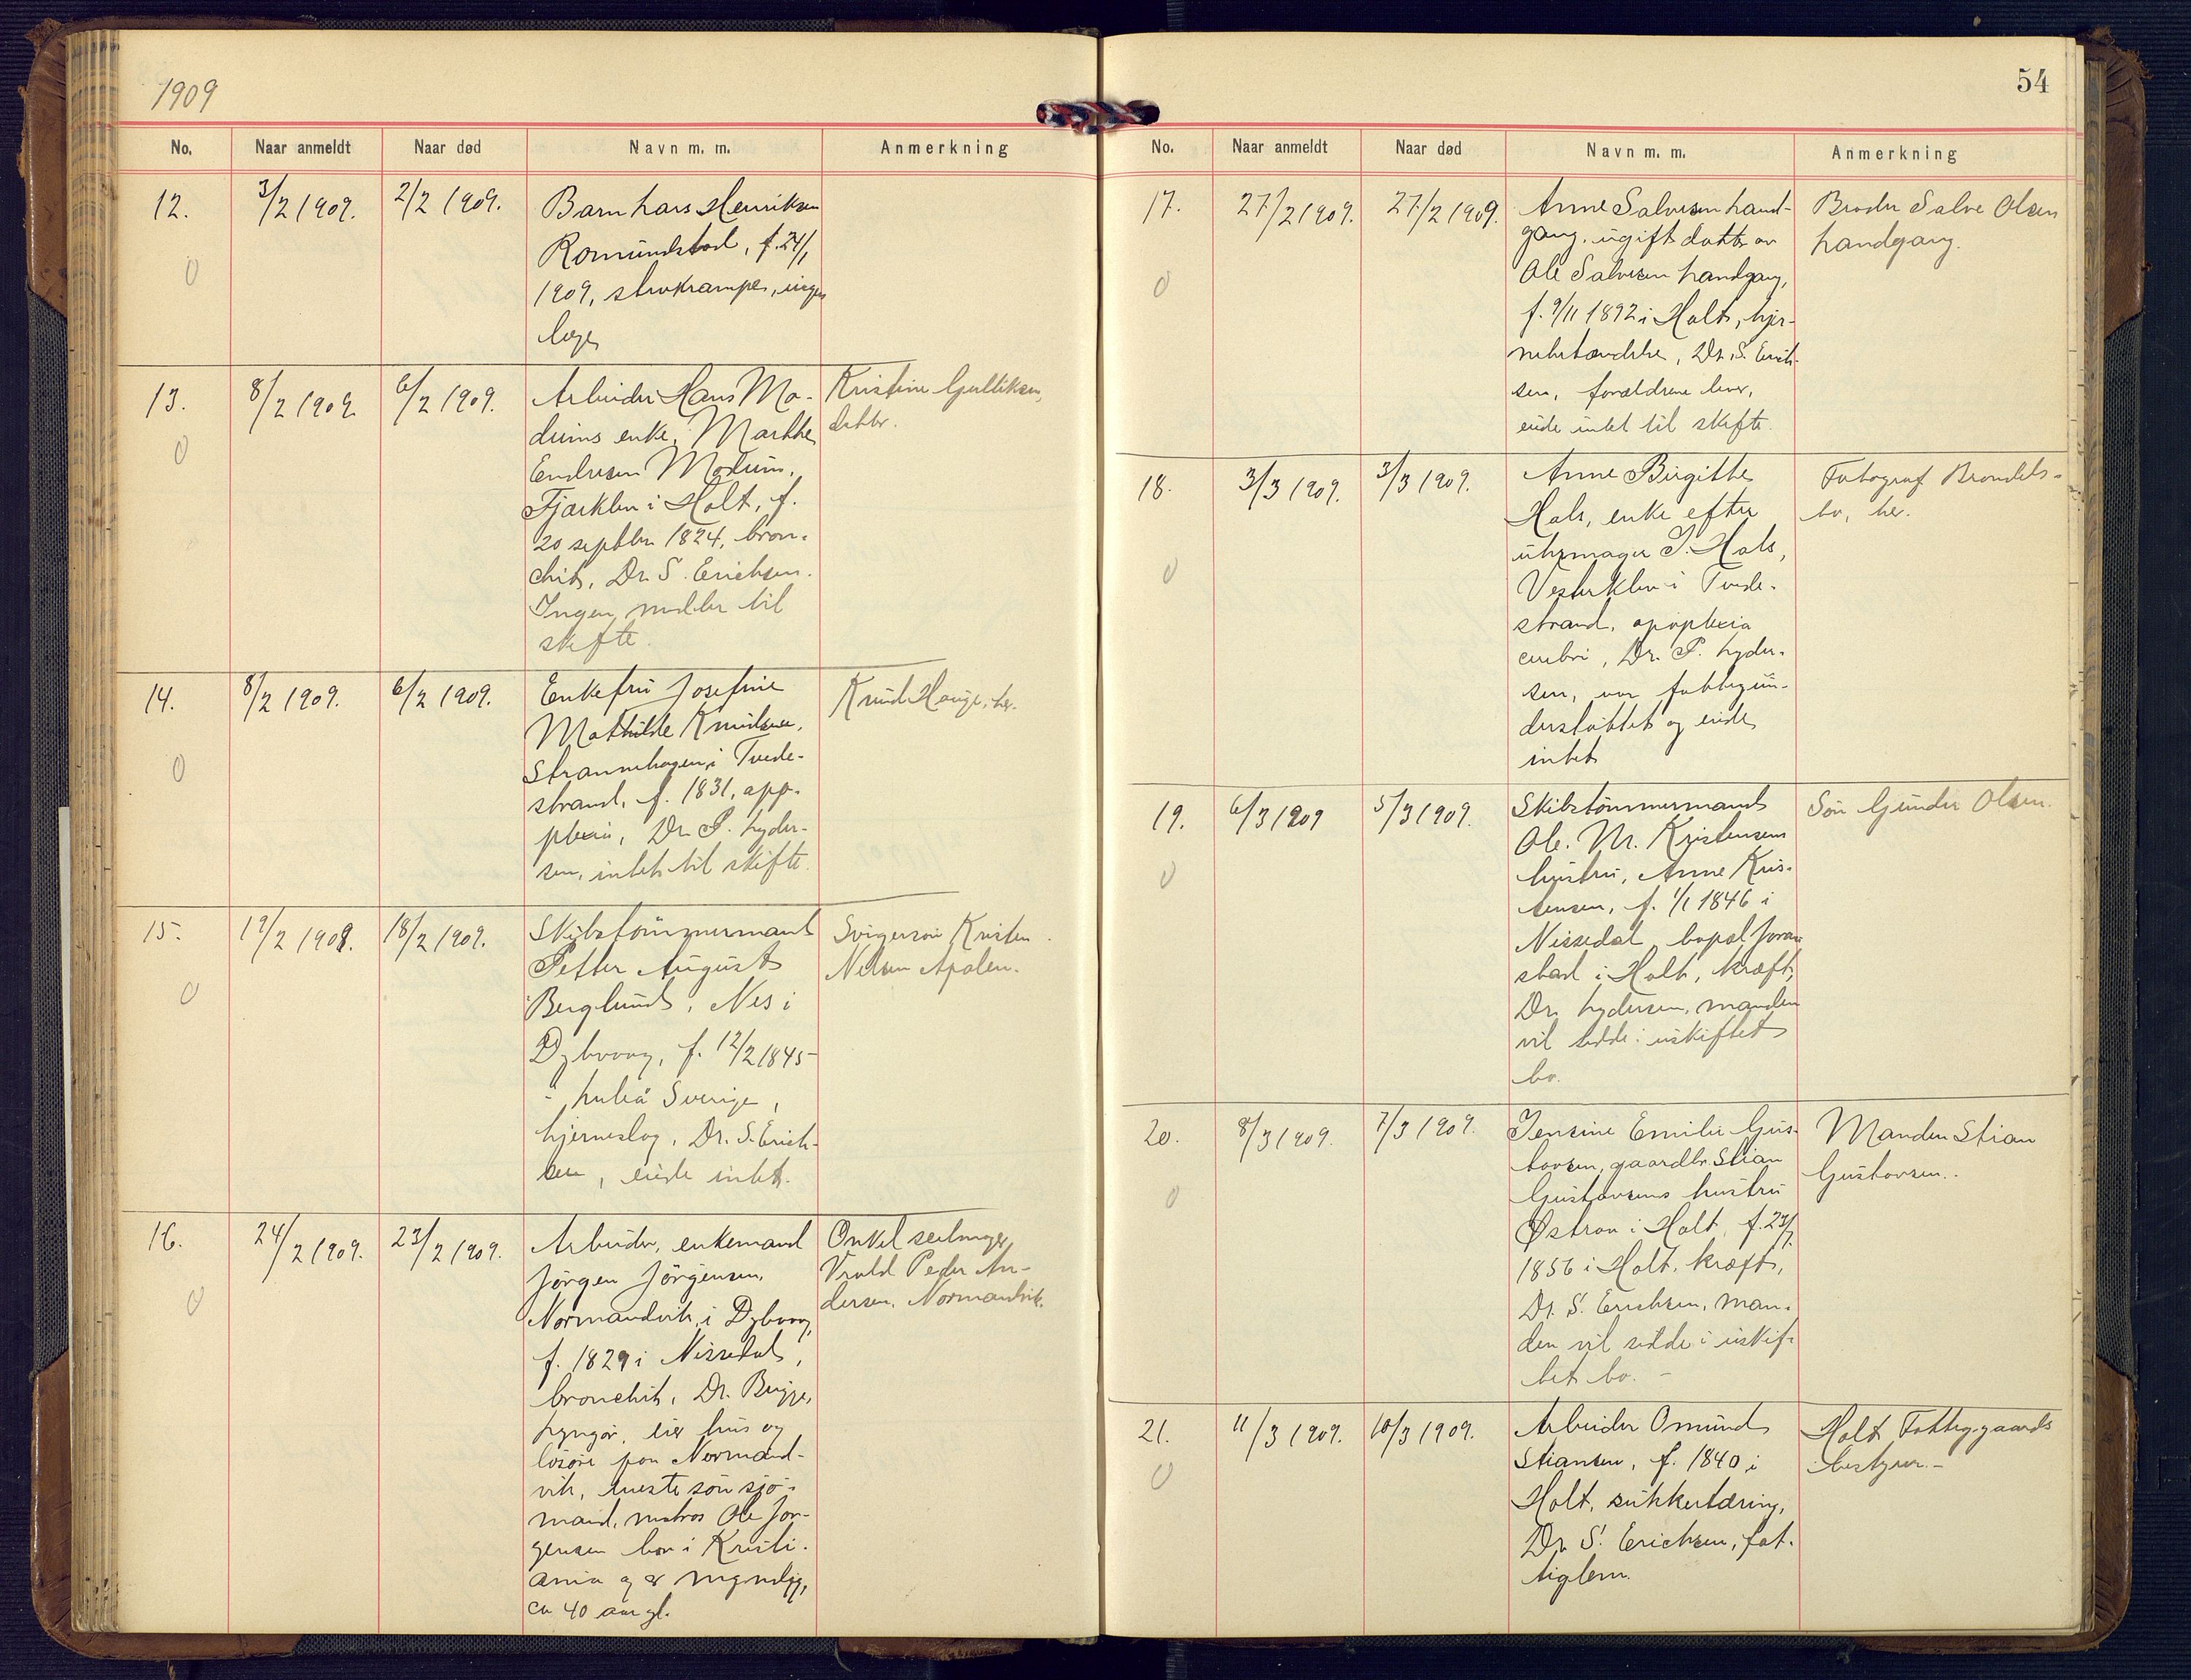 1909
No.
Naar anmeldt
Naar død
Navn m. m.
Anmerkning
12.
3/2 1909.
2/2 1909.
Barn Lars Henriksen
Romundstad, f. 24/1
1909, strukrampe, ingen
læge
0
13.
8/2 1909.
6/2 1909.
Arbeider Hans Mo-
dums enke, Marthe
Endresen Modum,
Fjærkleiv i Holt, f.
20 septbr 1824, bron-
chit, Dr. S. Erichsen.
Ingen midler til
skifte.
Kristine Gulliksen,
datter.
0
14.
8/2 1909.
6/2 1909.
Enkefru Josefine
Mathilde Knudsen,
Strannehagen i Tvede-
strand, f. 1831, apo-
plexia, Dr. P. Lyder-
sen, intet til skifte.
Knud Hauge, her.
0
15.
19/2 1909.
18/2 1909.
Skibstömmermand
Petter August
Berglund, Nes i
Dybvaag, f. 12/2 1845
i Luleå Sverige,
hjerneslag, Dr. S. Erich-
sen, eiede intet.
Svigersön Kristen
Nelsen Apalen.
0
16.
24/2 1909.
23/2 1909.
Arbeider, enkemand
Jörgen Jörgensen,
Normandvik i Dybvaag,
f. 1829 i Nissedal,
bronchit, Dr. Bugge,
Lyngör, eier hus og
lösöre paa Normand-
vik, eneste sön sjö-
mand, matros Ole Jör-
gensen bor i Kristi-
ania og er myndig,
ca 40 aar gl.
Onkel seilmager
Vrold Peder An-
dersen, Normandvik.
0
54
No.
Naar anmeldt
Naar død
Navn m. m.
Anmerkning
17.
27/2 1909.
27/2 1909.
Anne Salvesen Land-
gang, ugift datter av
Ole Salvesen Landgang,
f. 9/11 1892 i Holt, hjer-
nebetændelse, Dr. S. Erich-
sen, forældrene lever,
eiede intet til skifte.
Broder Salve Olsen
Landgang.
0
18.
3/3 1909.
3/3 1909.
Anne Birgitte
Hals, enke efter
uhrmager J. Hals,
Vesterkleiv i Tvede-
strand, apoplexia
cerebri, Dr. P. Lyder-
sen, var fattigun-
derstöttet og eiede
intet
Fotograf Brondels-
bo, her.
0
19.
6/3 1909
5/3 1909.
Skibstömmermand
Ole. M. Kristensens
hustru, Anne Kris-
tensen, f. 1/1 1846 i
Nissedal, bopæl Joran
stad i Holt, kræft,
Dr. Lydersen, manden
vil sidde i uskiftet
bo.
Sön Gunder Olsen.
0
20.
8/3 1909.
7/3 1909.
Jensine Emilie Gus-
tavsen, gaardbr. Stian
Gustavsens hustru
Østraa i Holt, f. 23/7
1856 i Holt, kræft,
Dr. S. Erichsen, man-
den vil sidde i uskif-
tet bo. -
Manden Stian
Gustavsen.
0
21.
11/3 1909.
10/3 1909.
Arbeider Omund
Stiansen, f. 1840 i
Holt, sukkertæring,
Dr. S. Erichsen, fat-
tiglem.
Holt Fattiggaards
bestyrer. -
0